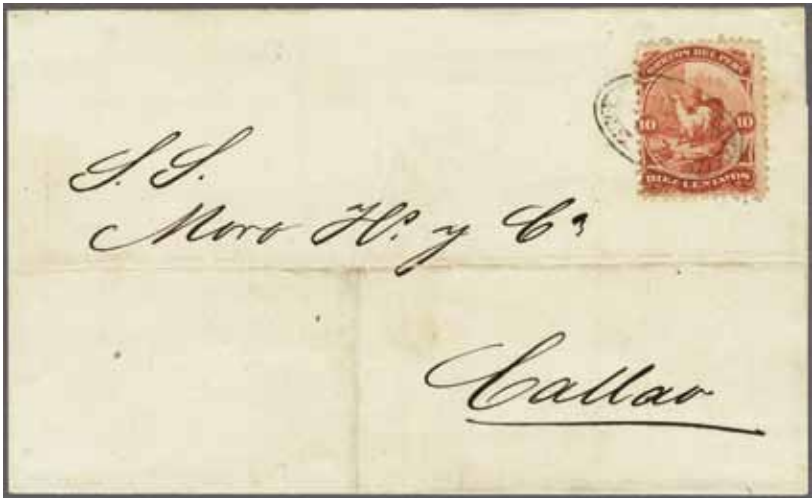 CORREOS DEL PERU
10 10
DIEZ CENTAVOS
S. S.
Moro Hs. y Ca
Callao